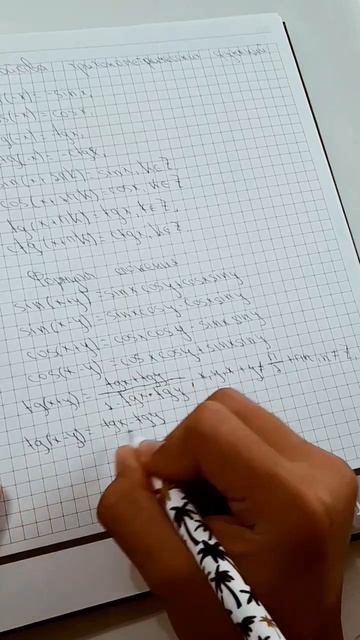 sin(-x) = -sinx,
cos(-x) = cosx,
tg(-x) = -tgx,
ctg(-x) = -ctgx,
cos(x+2πk) = cosx, k∈Z
tg(x+πk) = tgx, k∈Z,
ctg(x+πk) = ctgx, k∈Z.
Формулы сложения
sin(x+y) = sinx cosy + cosx siny
sin(x-y) = sinx cosy - cosx siny
cos(x+y) = cosx cosy - sinx siny
cos(x-y) = cosx cosy + sinx siny
tg(x+y) = tgx + tgy / 1 - tgx · tgy, x, y, x+y ≠ π/2 + πn, n ∈ Z
tg(x-y) = tgx - tgy